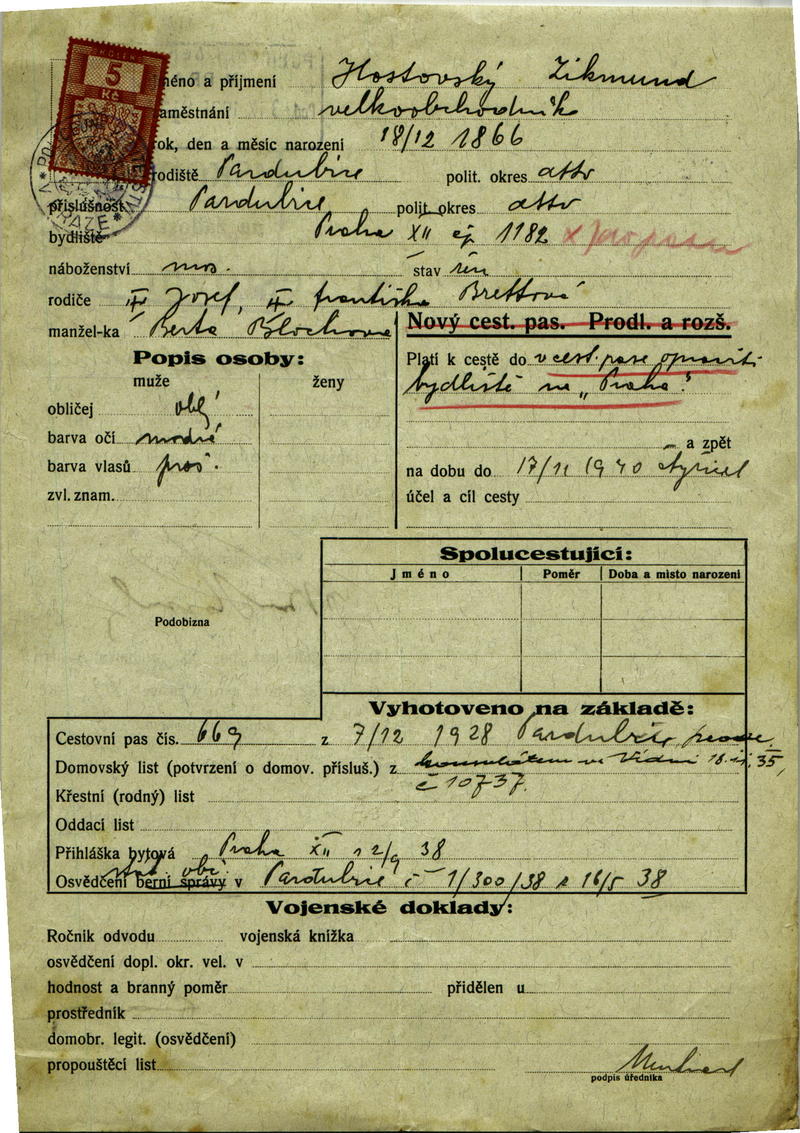 KOLEK
5
Kč
jméno a příjmení Hostovský Zikmund
zaměstnání velkoobchodník
rok, den a měsíc narození 18/12 1866
rodiště Pardubice polit. okres dtto
příslušnost Pardubice polit. okres dtto
bydliště Praha XII čp 1182
náboženství mos. stav žen
rodiče Josef, Františka Brettová
manžel-ka Berta Blochova
Nový cest. pas. Prodl. a rozš.
Popis osoby:
muže ženy
Platí k cestě do v cest. pase opraviti
bydliště na „Praha“
obličej obl
barva očí modré
barva vlasů proš.
zvl. znam.
a zpět
na dobu do 17/11 1940
účel a cíl cesty
Podobizna
Spolucestující:
Jméno Poměr Doba a místo narození
Vyhotoveno na základě:
Cestovní pas čís. 669 z 7/12 1928 Pardubice
Domovský list (potvrzení o domov. přísluš.) z konsulátem ve Vídni 35,
č 10737.
Křestní (rodný) list
Oddací list
Přihláška bytová Praha XII 12/9 38
stát. obč.
Osvědčení berní správy v Pardubice č 1/300/38 z 16/5 38
Vojenské doklady:
Ročník odvodu vojenská knížka
osvědčení dopl. okr. vel. v
hodnost a branný poměr přidělen u
prostředník
domobr. legit. (osvědčení)
propouštěcí list
podpis úředníka